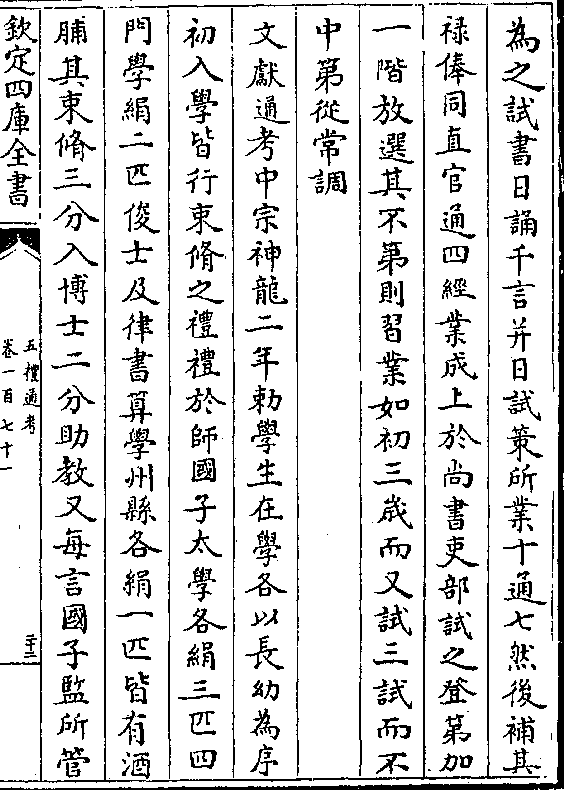 為之試書日誦千言并日試策所業十通七然後補其
祿俸同直官通四經業成上於尚書吏部試之登第加
一階放選其不第則習業如初三歲而又試三試而不
中第從常調
文獻通考中宗神龍二年勅學生在學各以長幼為序
初入學皆行束脩之禮禮於師國子太學各絹三匹四
門學絹二匹俊士及律書算學州縣各絹一匹皆有酒
脯其束脩三分入博士二分助教又每言國子監所管
欽定四庫全書
五禮通考
卷一百七十一
二十二